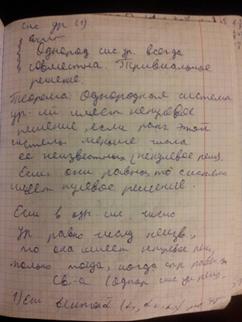 сис ур (1)
Однород сис ур. всегда
совместна. Тривиальное
решение.
Теорема: Однородная система
ур-ий имеет ненулевое
решение, если ранг этой
системы меньше числа
ее неизвестных (ненулевое реш).
Если они равны, то система
имеет нулевое решение.
Если в одн. сис число
ур равно числу неизв,
то она имеет ненулев реш,
только тогда, когда опр равен
Св-а (однор сис ур реш.
1) Если